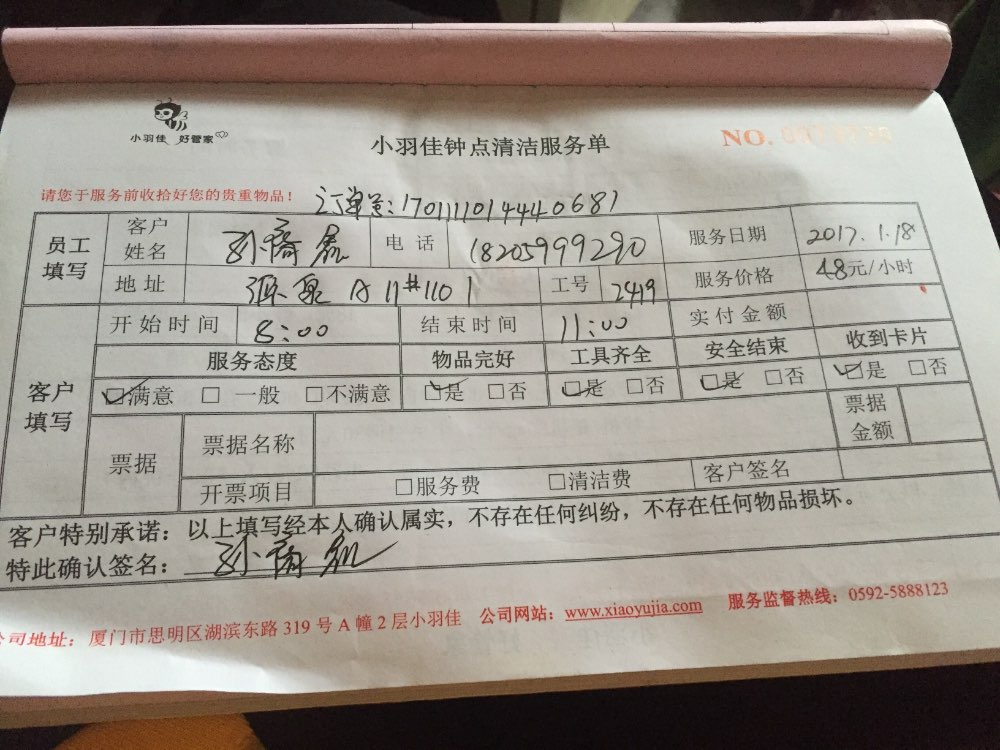 小羽佳 好管家
小羽佳钟点清洁服务单
NO.
请您于服务前收拾好您的贵重物品！
订单号：1701110144440681
员工填写 客户姓名 孙 电话 18205999290 服务日期 2017.1.18
地址 源泉 A 11#1101 工号 2419 服务价格 48元/小时
客户填写 开始时间 8:00 结束时间 11:00 实付金额
服务态度 物品完好 工具齐全 安全结束 收到卡片
☑满意 □ 一般 □不满意 ☑是 □否 ☑是 □否 ☑是 □否 ☑是 □否
票据 票据名称 票据金额
开票项目 □服务费 □清洁费 客户签名
客户特别承诺：以上填写经本人确认属实，不存在任何纠纷，不存在任何物品损坏。
特此确认签名：孙
公司地址：厦门市思明区湖滨东路 319 号 A 幢 2 层小羽佳 公司网站：www.xiaoyujia.com 服务监督热线：0592-5888123